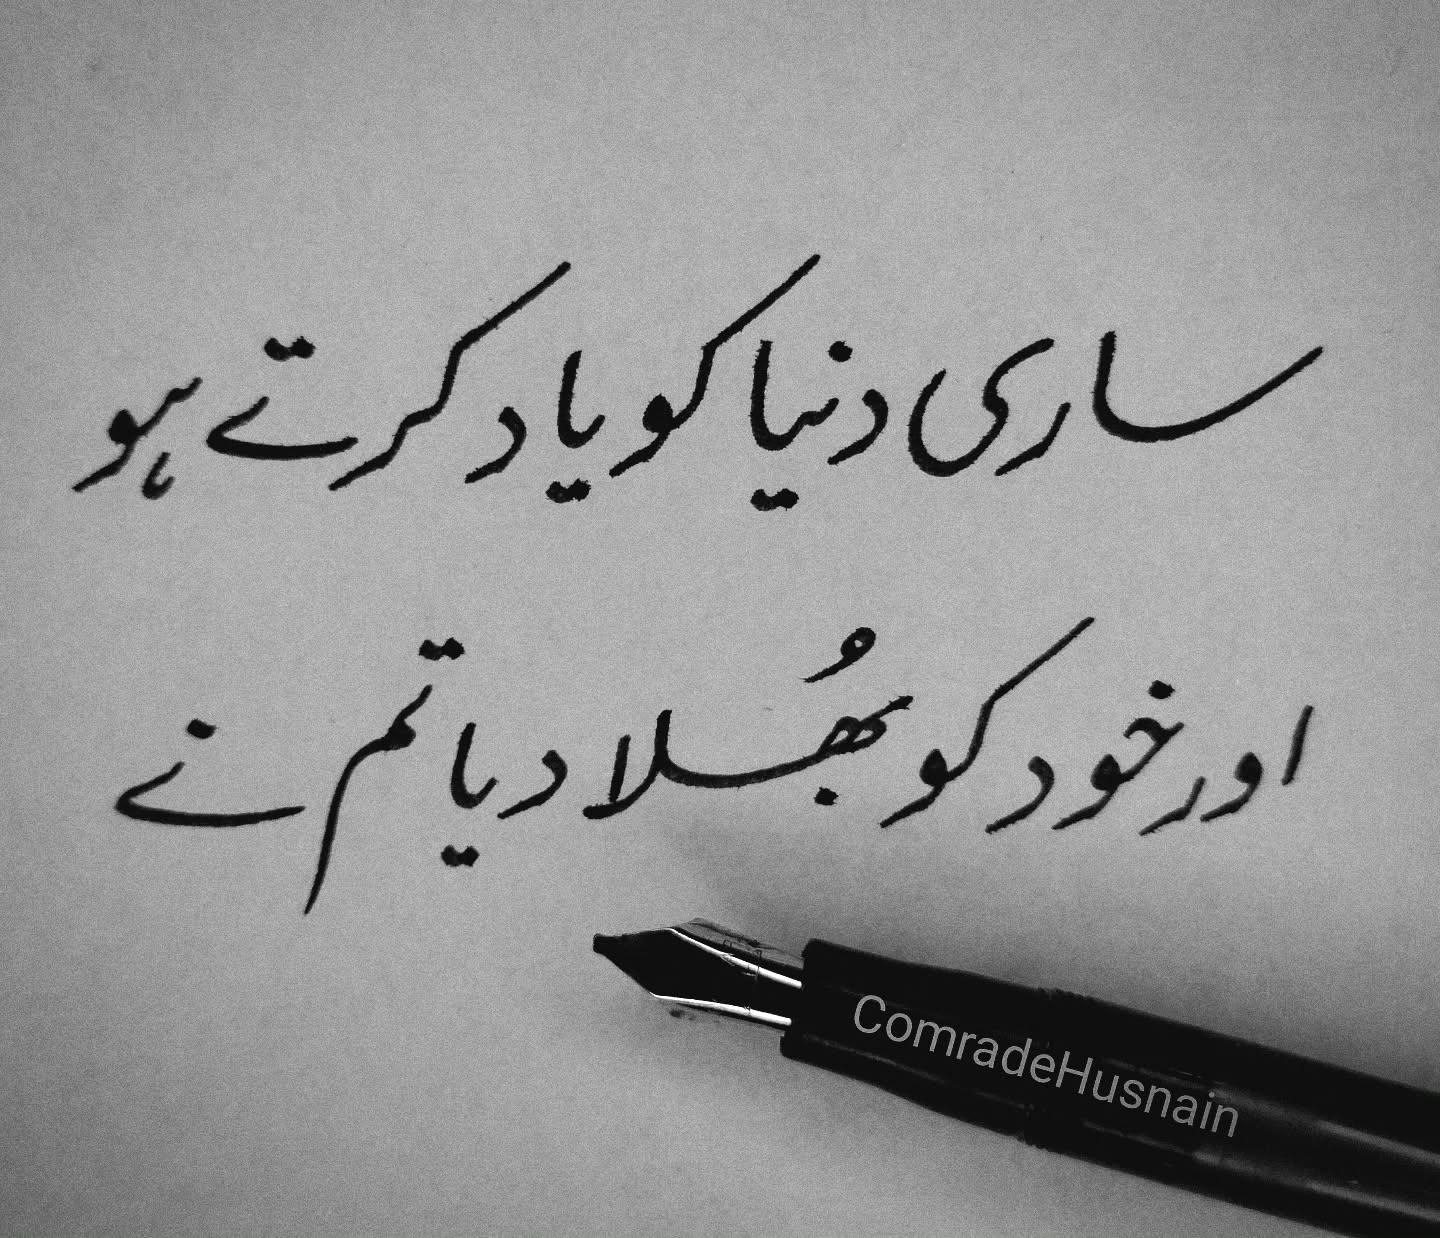 ساری دنیا کو یاد کرتے ہو
اور خود کو بھُلا دیا تم نے
ComradeHusnain